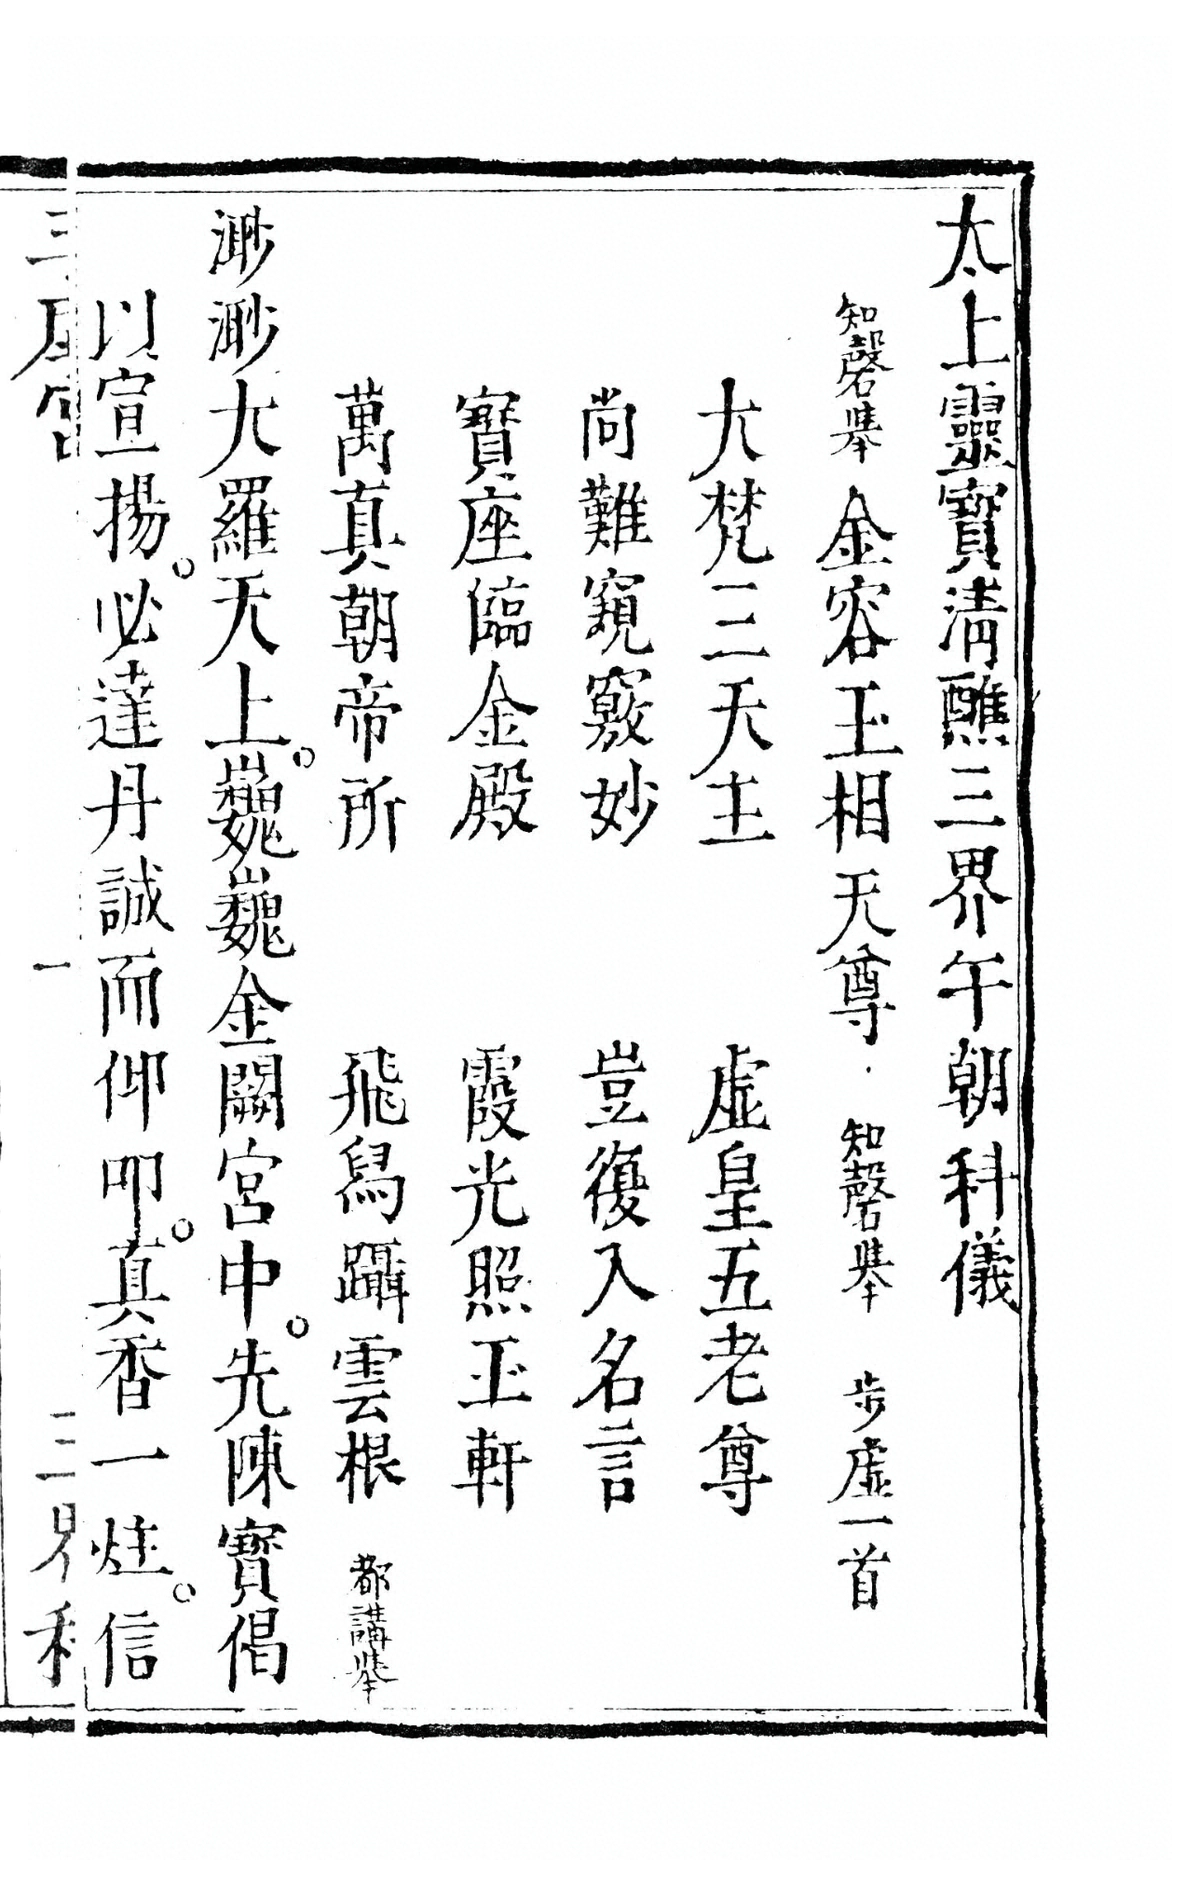 太上靈寶清醮三界午朝科儀
知磬舉 金容玉相天尊 知磬舉 步虛一首
大梵三天主 虛皇五老尊
尚難窺竅妙 豈復入名言
寶座臨金殿 霞光照玉軒
萬真朝帝所 飛舄躡雲根 都講舉
渺渺大羅天上。巍巍金闕宮中。先陳寶偈
以宣揚。必達丹誠而仰叩。真香一炷。信
一